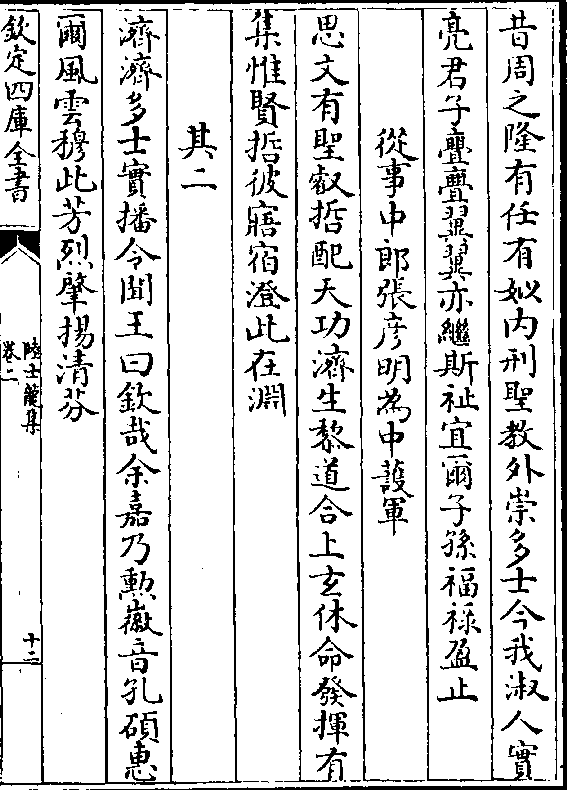 昔周之隆有任有姒内刑聖教外崇多士今我淑人實
亮君子亹亹翼翼亦繼斯祉宜爾子孫福祿盈止
從事中郎張彦明為中護軍
思文有聖叡哲配天功濟生黎道合上玄休命發揮有
集惟賢哲彼寤宿澄此在淵
其二
濟濟多士實播令聞王曰欽哉余嘉乃勲徽音孔碩惠
爾風雲穆此芳烈肇揚清芬
欽定四庫全書
陸士龍集
卷二
十二